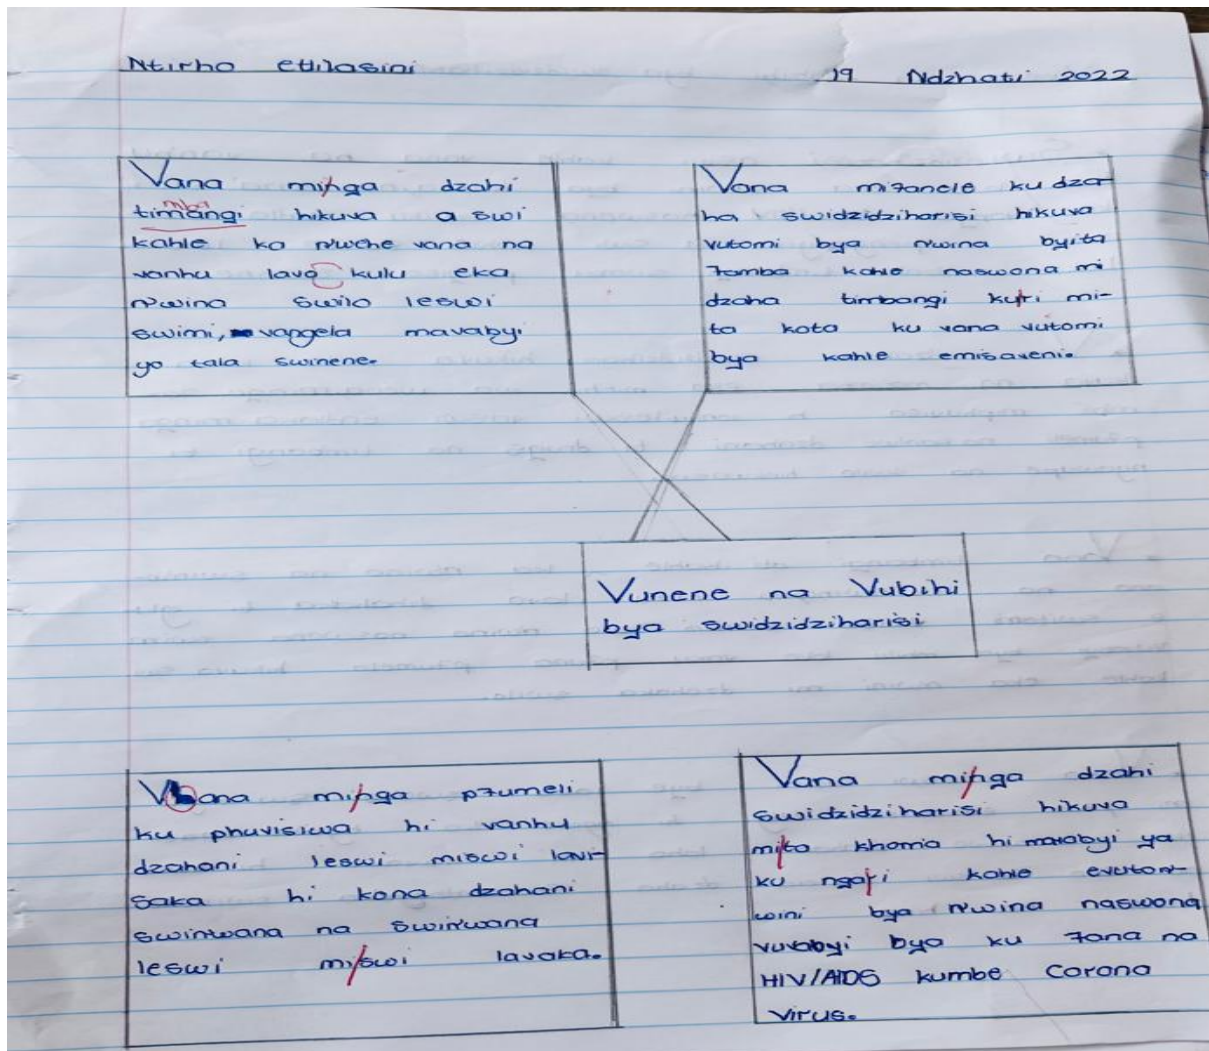 Ntirho etlilasini 19 Ndzhati 2022
Vana minga dzahi
timangi hikuva a swi
mba
kahle ka n'wehe vana na
vanhu lavo kulu eka
n'wina swilo leswi
swimi, vangela mavabyi
yo tala swinene.
Vana mifanele ku dza-
ha swidzidziharisi hikuva
vutomi bya n'wina byita
famba kahle naswona mi
dzaha timbangi kuri mi-
ta kota ku vana vutomi
bya kahle emisaveni.
Vunene na Vubihi
bya swidzidziharisi
Vana minga pfumeli
ku phuvisiwa hi vanhu
dzahani leswi miswi lavi-
saka hi kona dzahani
swin'wana na swin'wana
leswi miswi lavaka.
Vana minga dzahi
swidzidziharisi hikuva
mita khoma hi mavabyi ya
ku ngari kahle evutom-
wini bya n'wina naswona
vuvabyi bya ku fana na
HIV/AIDS kumbe Corona
Virus.